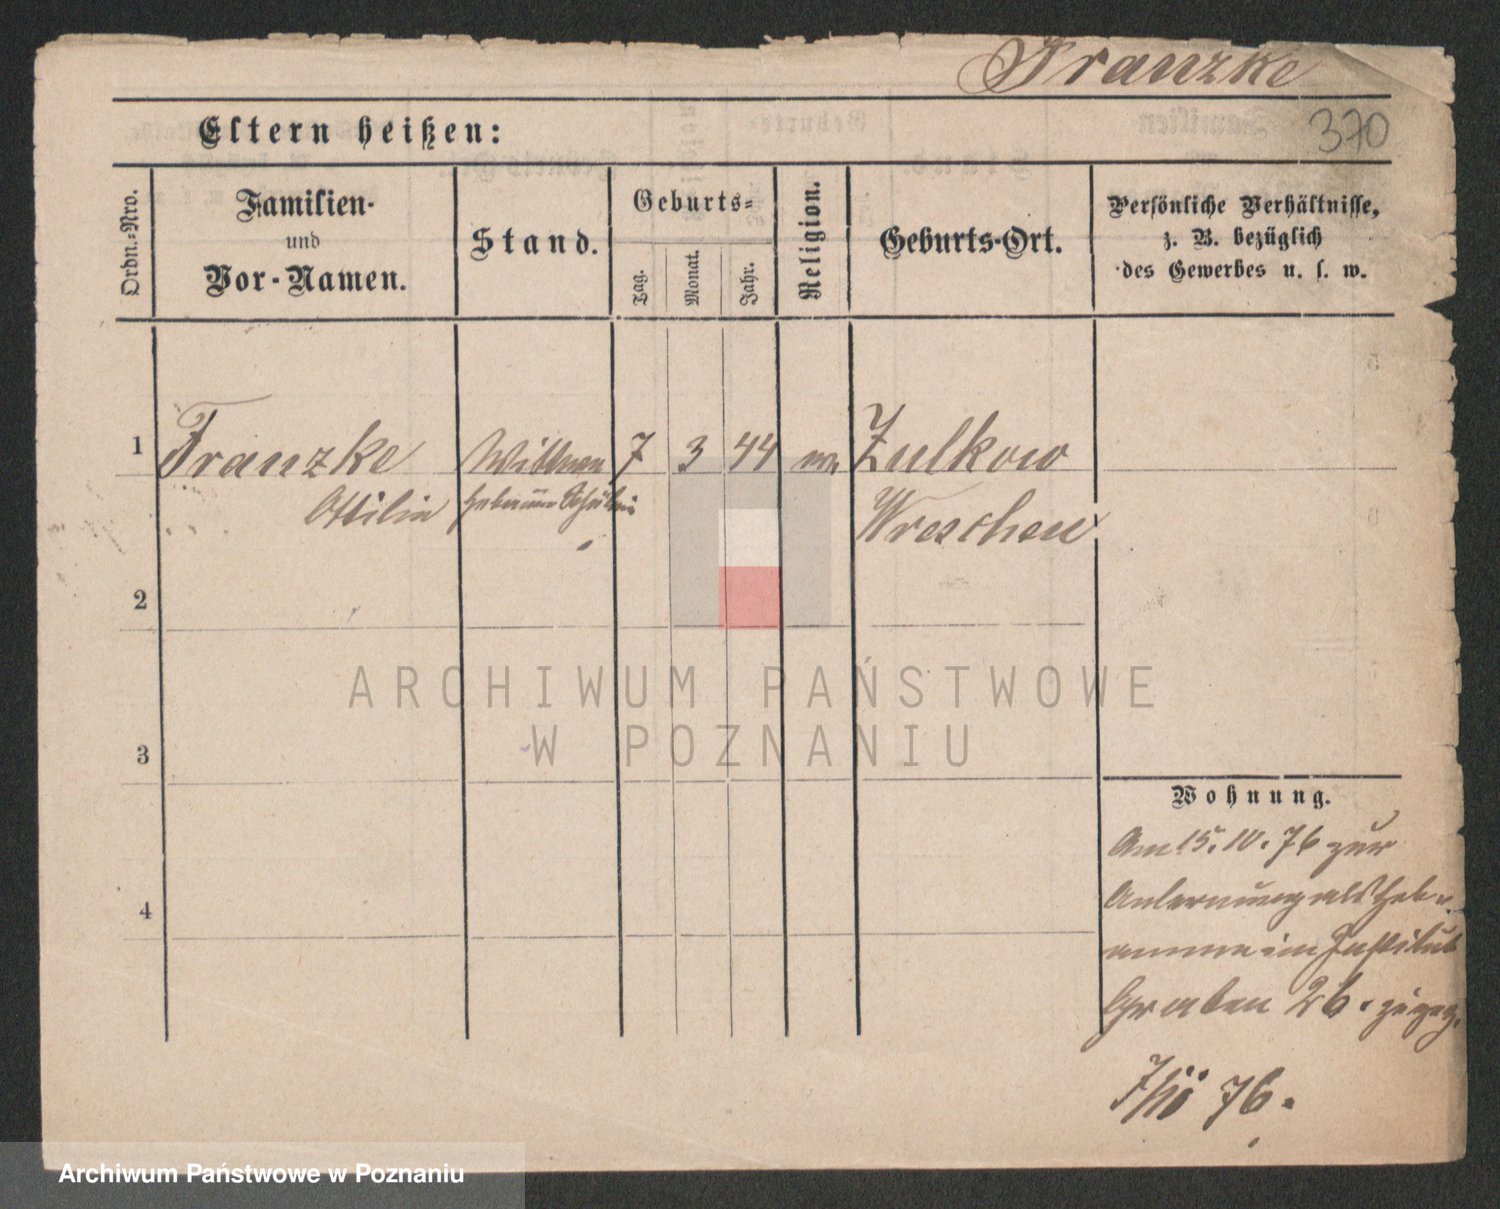 Franzke
370
Eltern heißen:
Ordn.-Nro.
Familien-
und
Vor-Namen.
Stand.
Geburts-
Tag.
Monat.
Jahr.
Religion.
Geburts-Ort.
Persönliche Verhältnisse,
z. B. bezüglich
des Gewerbes u. s. w.
1 Franzke Wittwe 7 3 44 Zulkow
Ottilie Wreschen
2
3
4
ARCHIWUM PAŃSTWOWE
W POZNANIU
Wohnung.
Am 15. 10. 76 zur
Anlernung als Heb-
amme im Institut
Graben 26. zugez.
76.
Archiwum Państwowe w Poznaniu